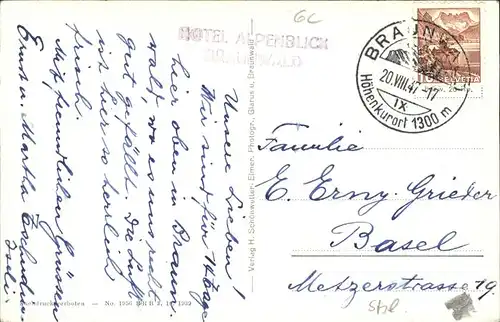 6c
HOTEL ALPENBLICK
BRAUNWALD
BRAUNWALD
20.VIII.47-17
IX
Höhenkurort 1300 m
10 HELVETIA
Unsere Lieben!
Wir sind für 14 Tage
hier oben in Braun-
wald, wo es uns recht
gut gefällt. Die Luft
ist hier so herrlich
frisch.
Mit freundlichen Grüssen
Ernst u. Martha Tschudin
Iseli.
Verlag H. Schönwetter-Elmer, Photogr., Glarus u. Braunwald
Nachdruck verboten — No. 1050
Familie
E. Erny-Grieder
Basel
Metzerstrasse 19.
Stpl